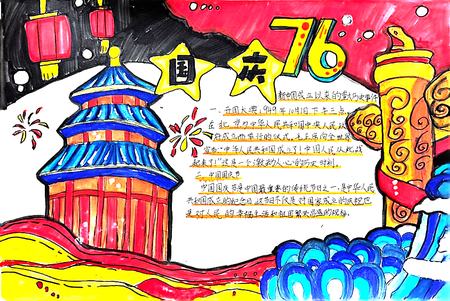 国庆
76
新中国成立以来的重大历史事件
一、开国大典，949年10月1日下午三点，
在北京为中华人民共和国中央人民政
府成立而举行的仪式，毛主席向全世界
宣布"中华人民共和国成立了！中国人民从此站
起来了"这是一个激动人心的历史时刻。
二、中国国庆节
中国国庆节是中国最重要的传统节日之一，是中华人民
共和国成立的纪念日，这节日不仅是对国家成立的庆祝也
是对人民的幸福生活和祖国繁荣昌盛的祝福。